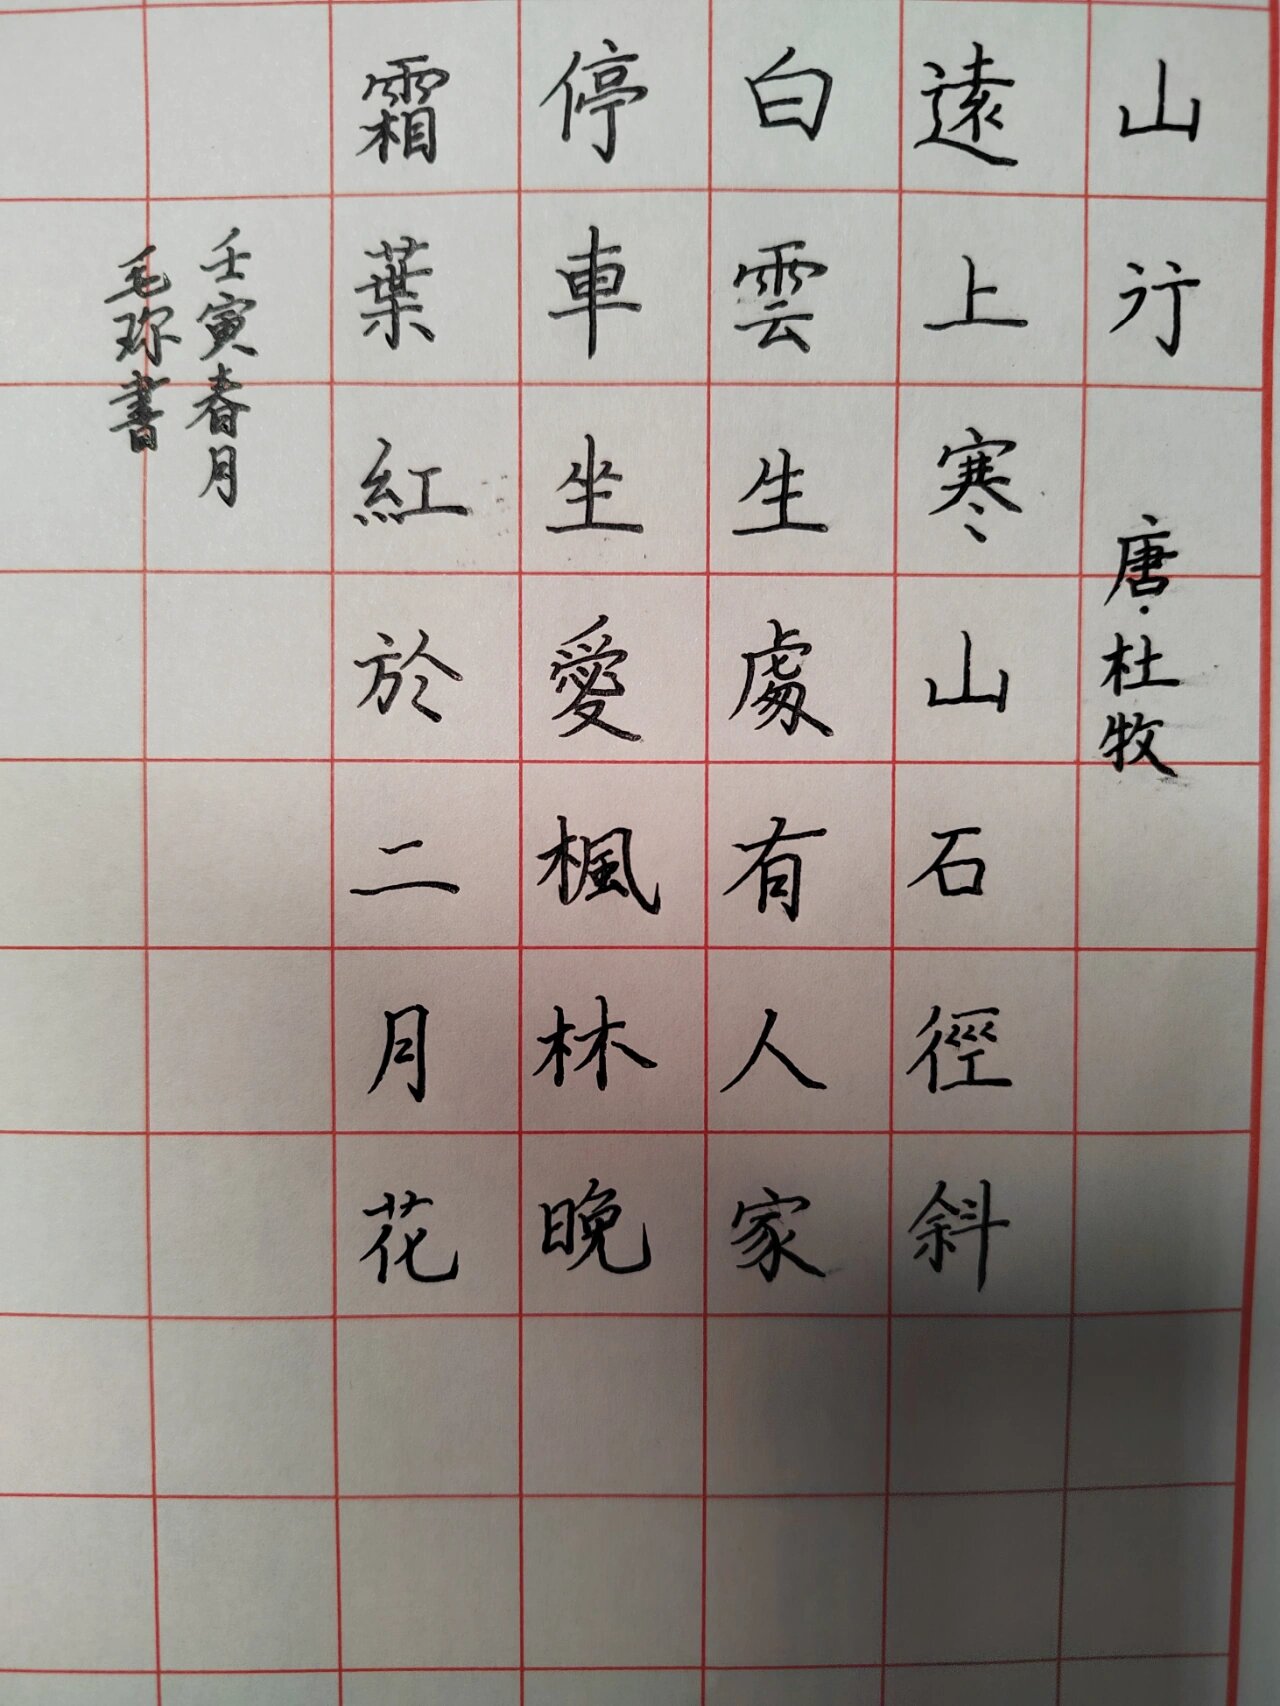 山行
唐·杜牧
遠上寒山石徑斜
白雲生處有人家
停車坐愛楓林晚
霜葉紅於二月花
壬寅春月
毛珎書